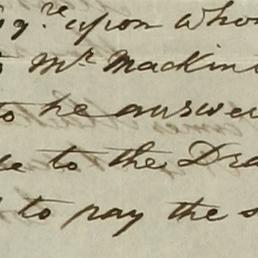 upon whom
Mr Mackin
to he answe
to the Dra
to pay the s